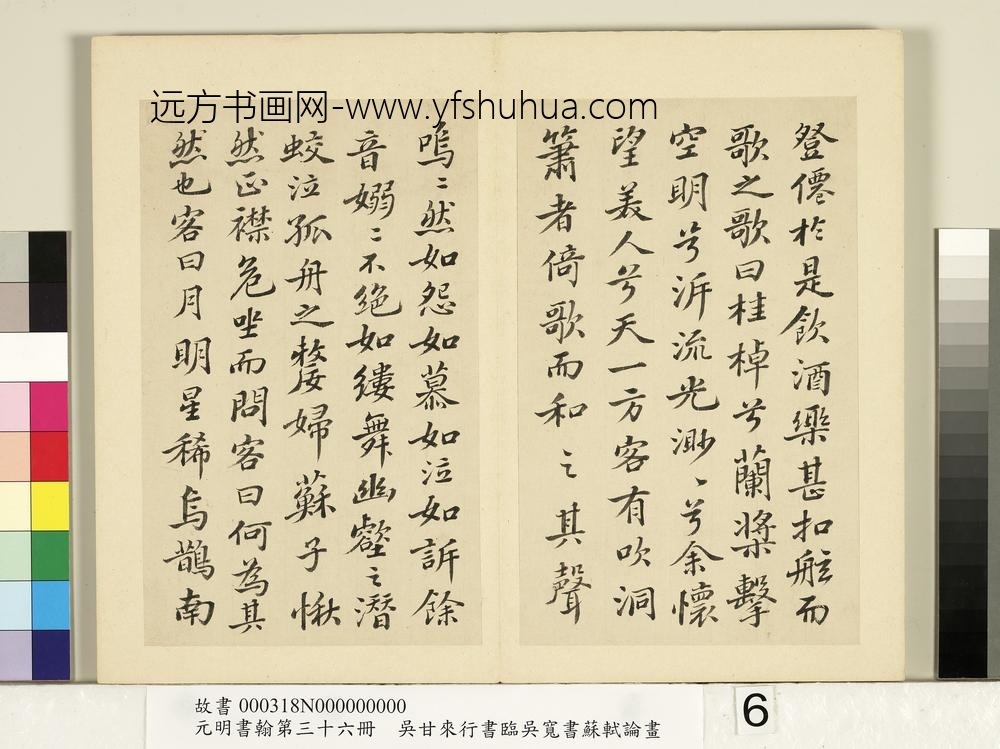 远方书画网-www.yfshuhua.com
登僊於是飲酒樂甚扣舷而
歌之歌曰桂棹兮蘭槳擊
空明兮泝流光渺〻兮余懷
望美人兮天一方客有吹洞
簫者倚歌而和之其聲
嗚〻然如怨如慕如泣如訴餘
音嫋〻不絕如縷舞幽壑之潛
蛟泣孤舟之嫠婦蘇子愀
然正襟危坐而問客曰何為其
然也客曰月明星稀烏鵲南
故書 000318N000000000
元明書翰第三十六冊 吳甘來行書臨吳寬書蘇軾論畫
6